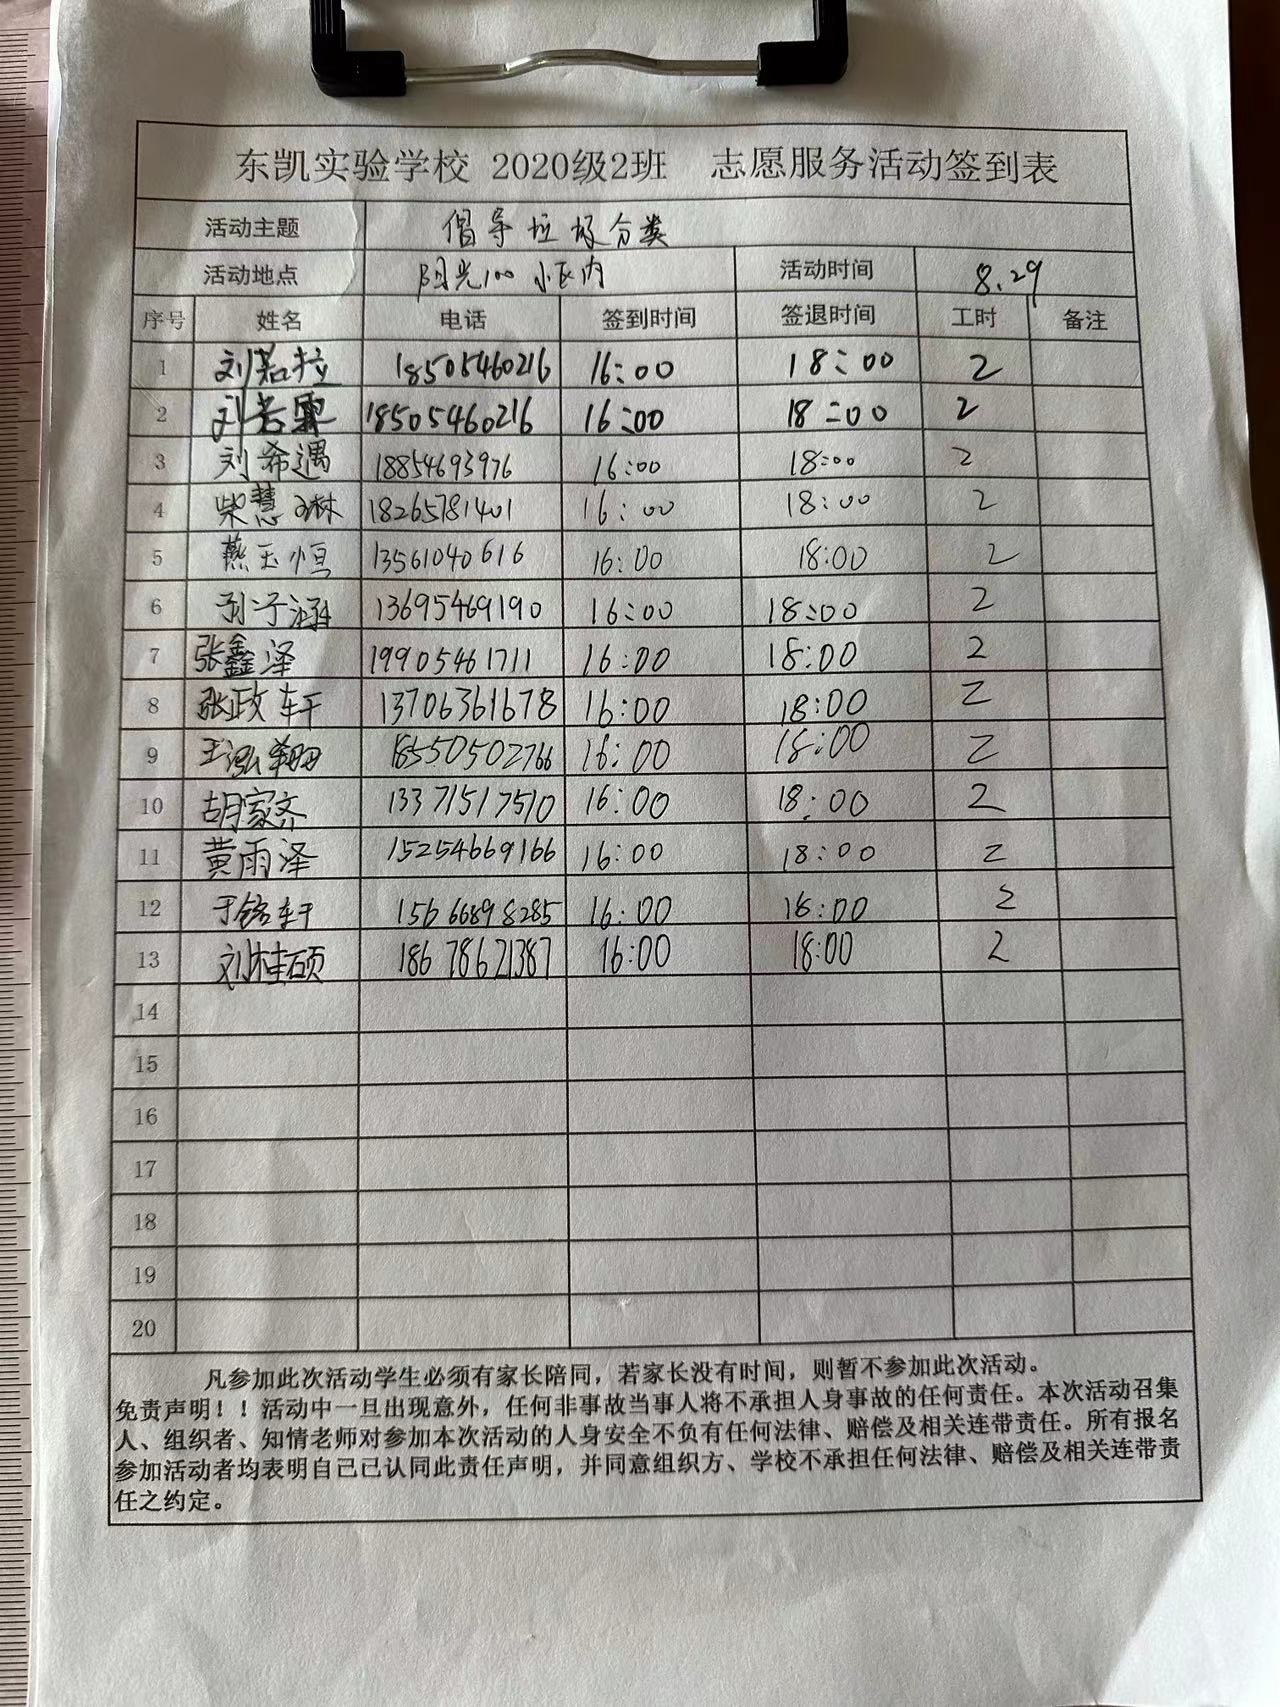 东凯实验学校 2020级2班 志愿服务活动签到表
活动主题 倡导垃圾分类
活动地点 阳光100 小区内 活动时间 8.29
序号 姓名 电话 签到时间 签退时间 工时 备注
1 刘若拉 18505460216 16:00 18:00 2
2 刘若霏 18505460216 16:00 18:00 2
3 刘希遇 18854693976 16:00 18:00 2
4 柴慧琳 18265781401 16:00 18:00 2
5 燕玉恒 13561040616 16:00 18:00 2
6 孙子涵 13695469190 16:00 18:00 2
7 张鑫泽 19905461711 16:00 18:00 2
8 张政轩 13706361678 16:00 18:00 2
9 王泓翔 18550502766 16:00 18:00 2
10 胡家齐 13371517510 16:00 18:00 2
11 黄雨泽 15254669166 16:00 18:00 2
12 于铭轩 15666898285 16:00 18:00 2
13 刘桂硕 18678621387 16:00 18:00 2
14
15
16
17
18
19
20
凡参加此次活动学生必须有家长陪同，若家长没有时间，则暂不参加此次活动。
免责声明！！活动中一旦出现意外，任何非事故当事人将不承担人身事故的任何责任。本次活动召集
人、组织者、知情老师对参加本次活动的人身安全不负有任何法律、赔偿及相关连带责任。所有报名
参加活动者均表明自己已认同此责任声明，并同意组织方、学校不承担任何法律、赔偿及相关连带责
任之约定。